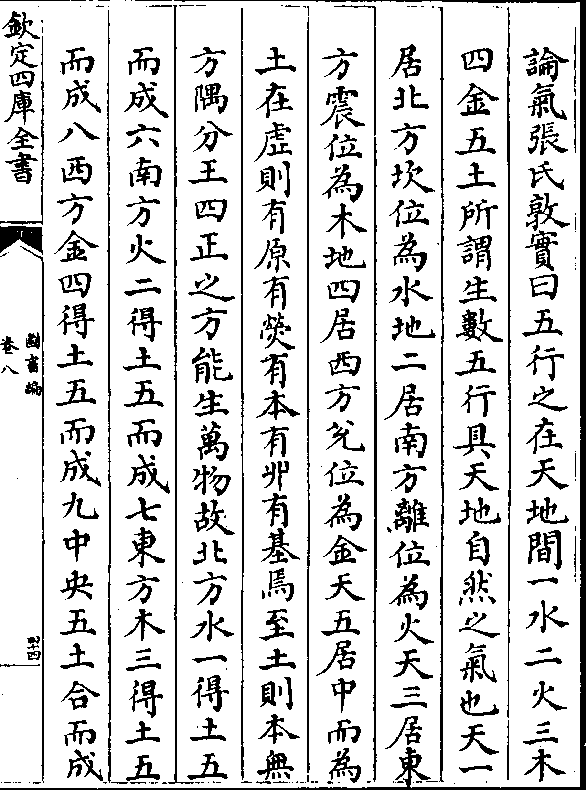 論氣張氏敦實曰五行之在天地間一水二火三木
四金五土所謂生數五行具天地自然之氣也天一
居北方坎位為水地二居南方離位為火天三居東
方震位為木地四居西方兊位為金天五居中而為
土在虛則有原有熒有本有丱有基焉至土則本無
方隅分王四正之方能生萬物故北方水一得土五
而成六南方火二得土五而成七東方木三得土五
而成八西方金四得土五而成九中央五土合而成
欽定四庫全書
圖書編
卷八
四十四